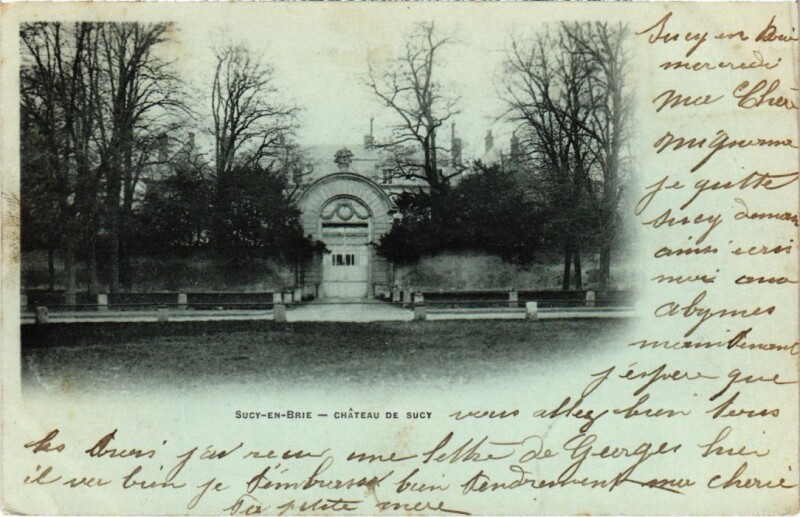 Sucy en Brie
mercredi
Ma Chère
mignonne
je quitte
Sucy demain
ainsi ecris
moi aux
Abymes
maintenant
j'éspère que
SUCY-EN-BRIE — CHÂTEAU DE SUCY
vous allez bien tous
les trois j'ai reçu une lettre de Georges hier
il va bien je t'embrasse bien tendrement ma cherie
Ta petite mere